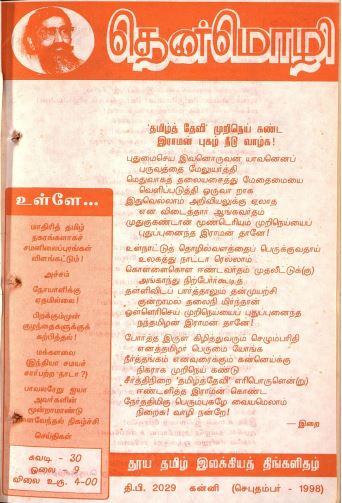 தென்மொழி
'தமிழ்த் தேவி' முறிநெய் கண்ட
இராமன் புகழ் நீடு வாழ்க!
புதுமைசெய் இவனொருவன் யாவனெனப்
புருவத்தை மேலுயர்த்தி
மெதுவாகத் தலையசைத்து மேதைமையை
வெளிப்படுத்தி ஒருவா றாக
இதுவெல்லாம் அறிவியலுக்கு ஏலாத
என விடைத்தார் ஆங்கவர்தம்
முதுகுகண்டான் மூண்டெரியும் முறிநெய்யைப்
புதுப்புனைந்த இராமன் தானே!
உள்நாட்டுத் தொழில்வளத்தைப் பெருக்குவதாய்
உலகத்து நாட்டா ரெல்லாம்
கொள்ளைகொள ஈண்டவர்தம் முதலீட்டுக்(கு)
அங்காந்து நிற்போர்கூடித்
தள்ளிவிடப் பார்த்தாலும் தன்முயற்சி
குன்றாமல் தலைநிமிர்ந்தான்
ஒள்ளெரிசெய் முறிநெய்யைப் புதுப்புனைந்த
நந்தமிழன் இராமன் தானே!
போர்த்த இருள் கிழித்துவரும் செழும்பரிதி
எனத்தமிழர் பெருமை யோங்க
நீர்த்தங்கம் எனவுரைக்கும் கன்னெய்க்கு
நிகராக முறிநெய் கண்டு
சீர்த்திநிறை 'தமிழ்த்தேவி' எரிபொருளென்(று)
ஈண்டளித்த இராமன் கொண்ட
நேர்த்திமிகு பெரும்புகழே வையமெலாம்
நிறைக! வாழி நன்றே!
— இறை
உள்ளே...
மாதிரித் தமிழ்
நகரங்களாகச்
சமனிலைப்புரங்கள்
விளங்கட்டும்!
அச்சம்
நோயாளிக்கு
ஏதுமில்லை!
பிறக்கும்முன்
குழந்தைகளுக்குக்
கற்பித்தல்!
மக்களவை
(இந்தியா சமயச்
சார்பற்ற நாடா ?)
பாவலரேறு ஐயா
அவர்களின்
மூன்றாமாண்டு
நினைவேந்தல் நிகழ்ச்சி
செய்திகள்
சுவடி - 30
ஓலை - 9
விலை உரு. 4-00
தூய தமிழ் இலக்கியத் திங்களிதழ்
தி.பி. 2029 கன்னி (செபுதம்பர் - 1998)